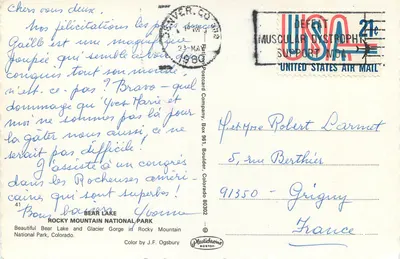 Chers vous deux.
Nos félicitations les plus
Gaëll est une magnifique
poupée, qui semble avoir
conquis tout son monde,
n'est-ce pas? Bravo - quel
dommage qu'Yves-Marie et
moi ne sommes pas là pour
la gâter nous aussi, ce ne
serait pas difficile!
J'assiste à un congrès
dans les Rocheuses améri-
caines qui sont superbes!
Bons baisers Yvonne
41
BEAR LAKE
ROCKY MOUNTAIN NATIONAL PARK
Beautiful Bear Lake and Glacier Gorge in Rocky Mountain
National Park, Colorado.
Color by J.F. Ogsbury
Postcard Company, Box 961, Boulder, Colorado 80302
Plastichrome
BOSTON
DENVER, CO
PM
23 MAY
1980
MUSCULAR DYSTROPHY
SUPPORT MDA
USA 21c
UNITED STATES AIR MAIL
M. et Mme Robert Larmet
5, rue Berthier
91350 - Grigny
France